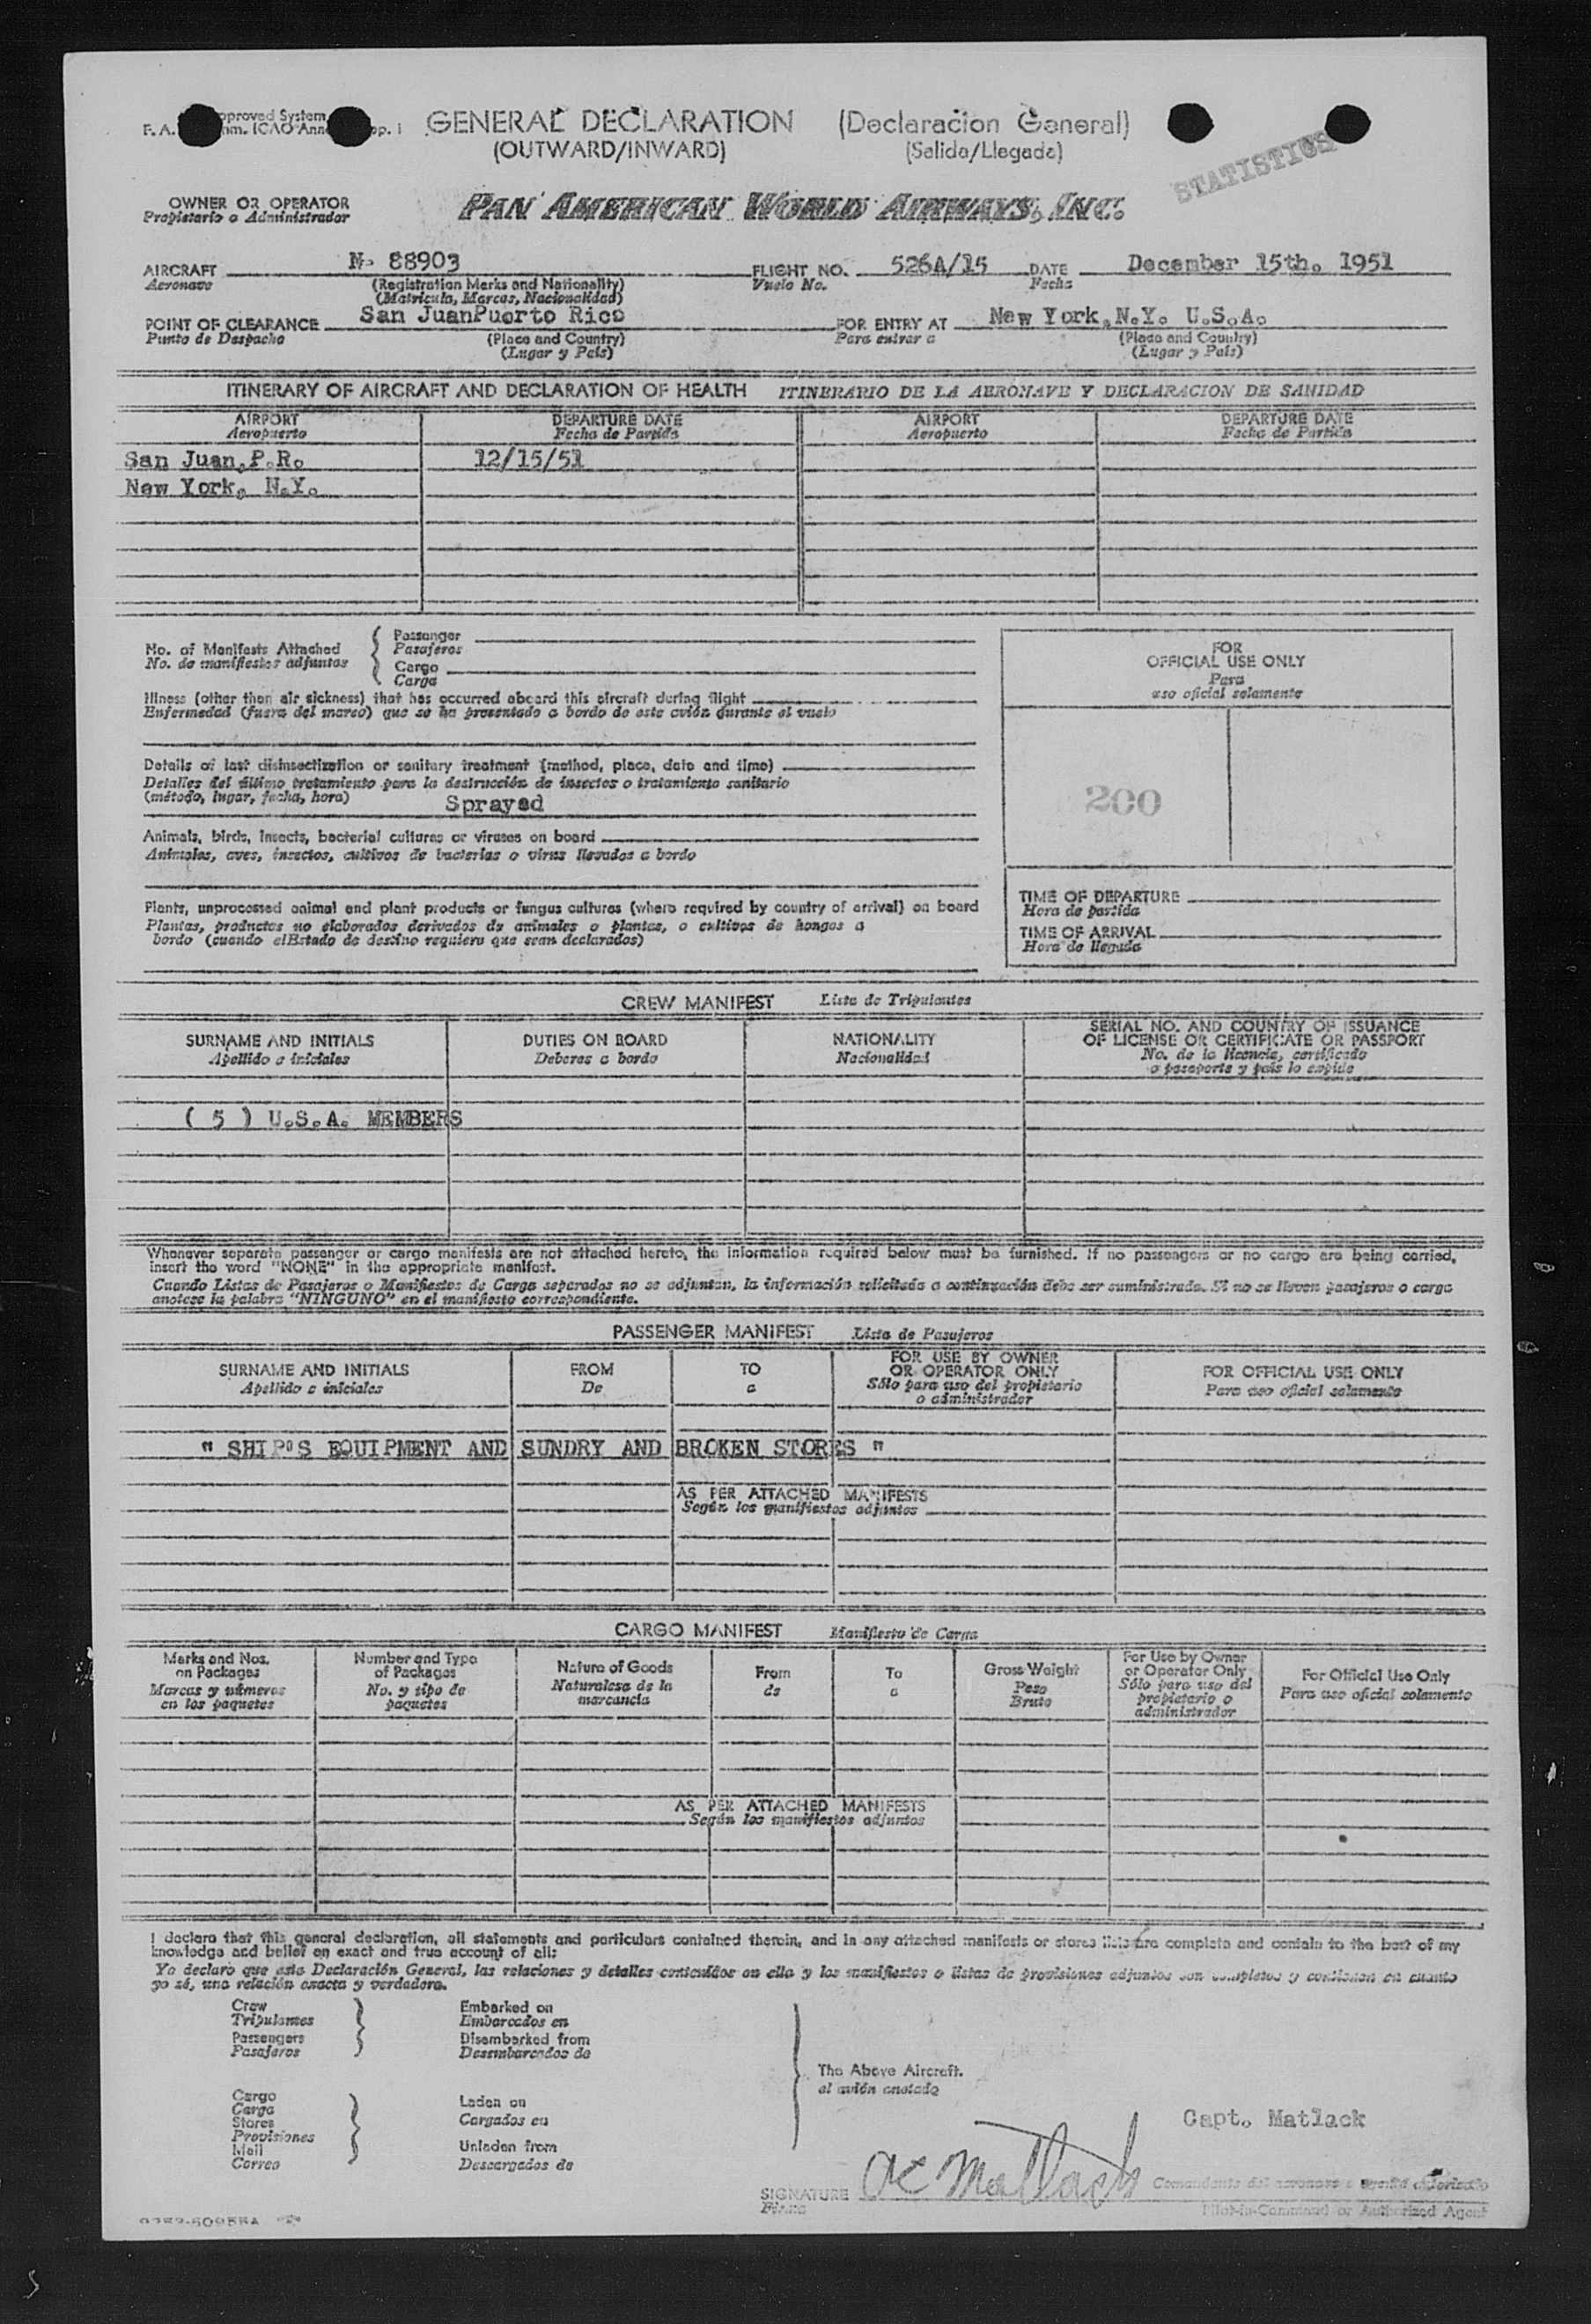 F. A. pproved System
nm. ICAO Anne pp. 1
GENERAL DECLARATION (Declaracion General)
(OUTWARD/INWARD) (Salida/Llegada)
STATISTICS
OWNER OR OPERATOR
Propietario o Administrador
PAN AMERICAN WORLD AIRWAYS, INC.
AIRCRAFT N- 88903 FLIGHT NO. 526A/15 DATE December 15th. 1951
Aeronave (Registration Marks and Nationality) Vuelo No. Fecha
(Matricula, Marcas, Nacionalidad)
POINT OF CLEARANCE San JuanPuerto Rico FOR ENTRY AT New York,N.Y. U.S.A.
Punto de Despacho (Place and Country) Para entrar a (Place and Country)
(Lugar y País) (Lugar y País)
ITINERARY OF AIRCRAFT AND DECLARATION OF HEALTH ITINERARIO DE LA AERONAVE Y DECLARACION DE SANIDAD
AIRPORT DEPARTURE DATE AIRPORT DEPARTURE DATE
Aeropuerto Fecha de Partida Aeropuerto Fecha de Partida
San Juan,P.R. 12/15/51
New York, N.Y.
No. of Manifests Attached
No. de manifiestos adjuntos
Passenger
Pasajeros
Cargo
Carga
Illness (other than air sickness) that has occurred aboard this aircraft during flight
Enfermedad (fuera del mareo) que se ha presentado a bordo de este avión durante el vuelo
Details of last disinsectization or sanitary treatment (method, place, date and time)
Detalles del último tratamiento para la destrucción de insectos o tratamiento sanitario
(método, lugar, fecha, hora) Sprayed
Animals, birds, insects, bacterial cultures or viruses on board
Animales, aves, insectos, cultivos de bacterias o virus llevados a bordo
Plants, unprocessed animal and plant products or fungus cultures (where required by country of arrival) on board
Plantas, productos no elaborados derivados de animales o plantas, o cultivos de hongos a
bordo (cuando el Estado de destino requiera que sean declarados)
FOR
OFFICIAL USE ONLY
Para
uso oficial solamente
200
TIME OF DEPARTURE
Hora de partida
TIME OF ARRIVAL
Hora de llegada
CREW MANIFEST Lista de Tripulantes
SURNAME AND INITIALS DUTIES ON BOARD NATIONALITY SERIAL NO. AND COUNTRY OF ISSUANCE
OF LICENSE OR CERTIFICATE OR PASSPORT
Apellido e iniciales Deberes a bordo Nacionalidad No. de la licencia, certificado
o pasaporte y país lo expide
( 5 ) U.S.A. MEMBERS
Whenever separate passenger or cargo manifests are not attached hereto, the information required below must be furnished. If no passengers or no cargo are being carried,
insert the word "NONE" in the appropriate manifest.
Cuando Listas de Pasajeros o Manifiestos de Carga separados no se adjuntan, la información solicitada a continuación debe ser suministrada. Si no se llevan pasajeros o carga
anotese la palabra "NINGUNO" en el manifiesto correspondiente.
PASSENGER MANIFEST Lista de Pasajeros
SURNAME AND INITIALS FROM TO FOR USE BY OWNER
OR OPERATOR ONLY FOR OFFICIAL USE ONLY
Apellido e iniciales De a Sólo para uso del propietario
o administrador Para uso oficial solamente
" SHIP'S EQUIPMENT AND SUNDRY AND BROKEN STORES "
AS PER ATTACHED MANIFESTS
Según los manifiestos adjuntos
CARGO MANIFEST Manifiesto de Carga
Marks and Nos.
on Packages
Marcas y números
en los paquetes
Number and Type
of Packages
No. y tipo de
paquetes
Nature of Goods
Naturalesa de la
marcancia
From
de
To
a
Gross Weight
Peso
Bruto
For Use by Owner
or Operator Only
Sólo para uso del
propietario o
administrador
For Official Use Only
Para uso oficial solamente
AS PER ATTACHED MANIFESTS
Según los manifiestos adjuntos
I declare that this general declaration, all statements and particulars contained therein, and in any attached manifests or stores lists are complete and contain to the best of my
knowledge and belief an exact and true account of all:
Yo declaro que esta Declaración General, las relaciones y detalles contenidos en ella y los manifiestos o listas de provisiones adjuntos son completos y contienen en cuanto
yo sé, una relación exacta y verdadera.
Crew
Tripulantes
Passengers
Pasajeros
Embarked on
Embarcados en
Disembarked from
Desembarcados de
The Above Aircraft.
el avión anotado
Cargo
Carga
Stores
Provisiones
Mail
Correo
Laden on
Cargados en
Unladen from
Descargados de
Capt. Matlack
SIGNATURE Matlack
Firma
Comandante del aeronave o agente autorizado
Pilot-in-Command or Authorized Agent